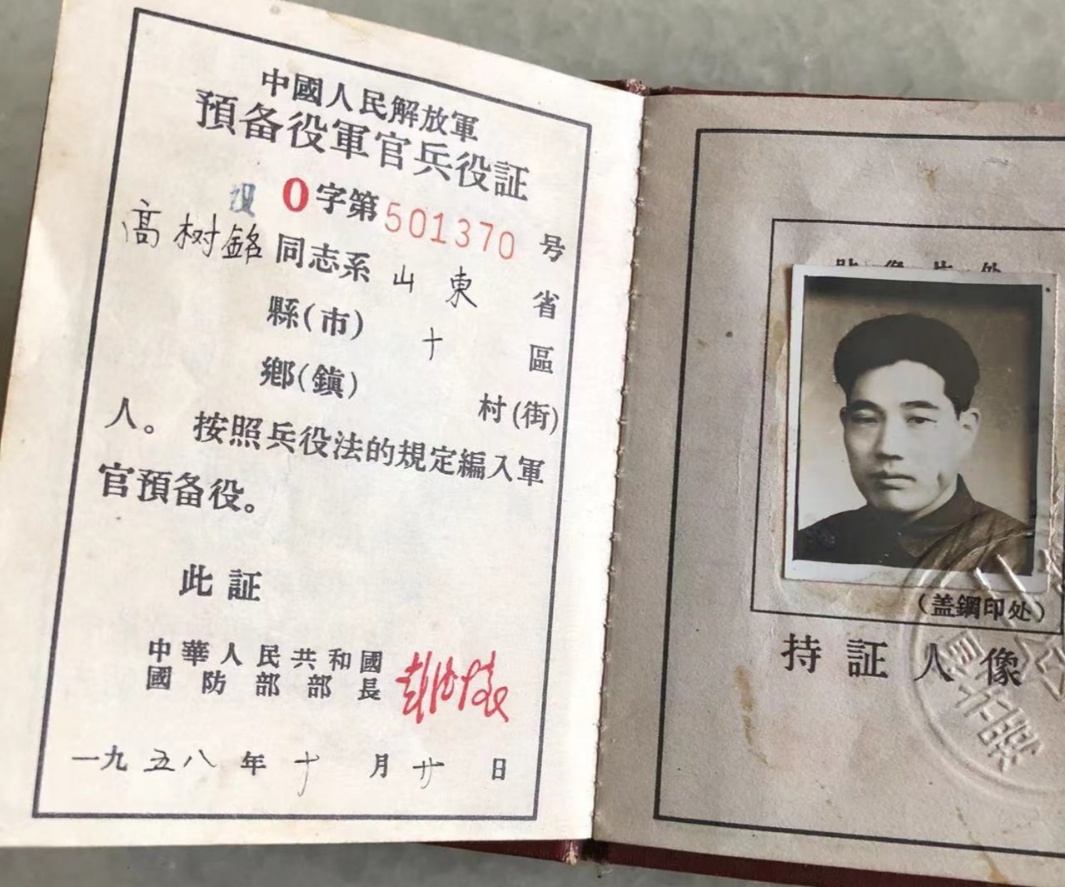 中國人民解放軍
預备役軍官兵役証
O字第501370号
高树銘同志系山東省
縣(市)十區
鄉(鎮)村(街)
人。按照兵役法的規定編入軍
官預备役。
此証
中華人民共和國
國防部部長 彭德懷
一九五八年十月廿日
貼像片处
(盖鋼印处)
持証人像